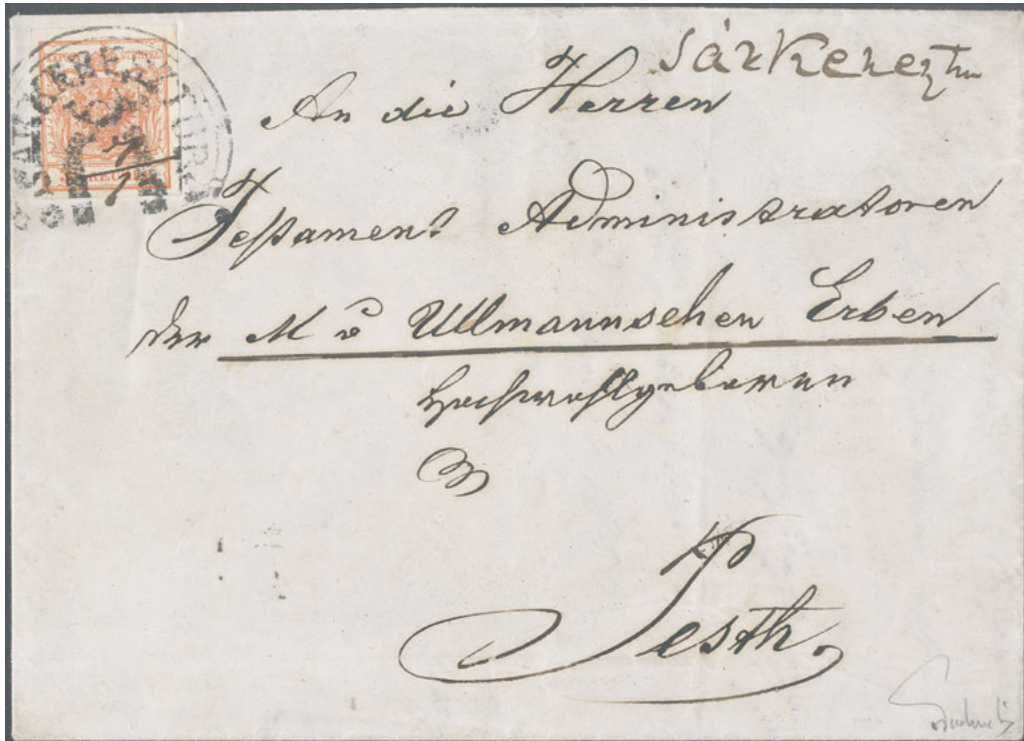 Sárkerezt
An die Herren
Testament Administratoren
der M v Ullmannschen Erben
Hochwohlgeboren
Pesth.